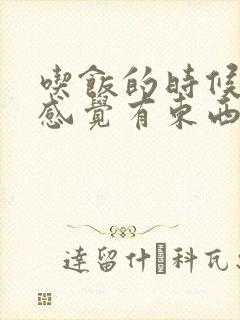 喫飯的時候
感覺有東西
達留什科瓦